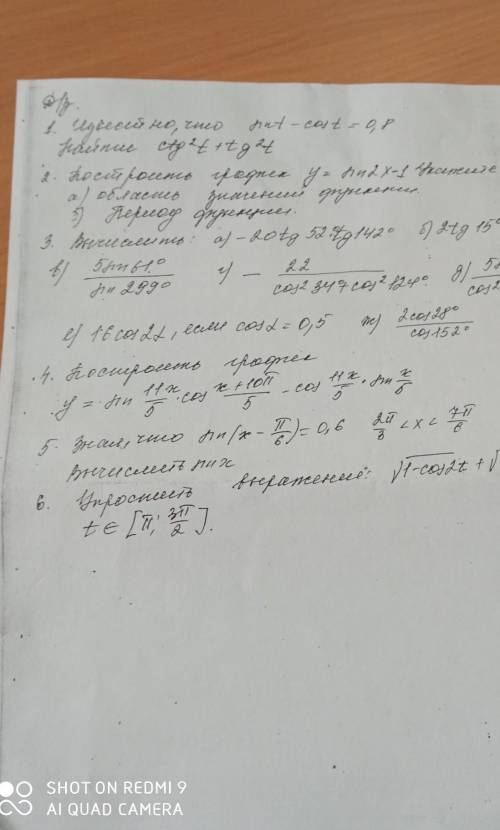 Д/з.
1. Известно, что sint - cost = 0,8
Найти ctg²t + tg²t
2. Построить график y = sin2x-1 Укажите
а) область значений функции.
б) Период функции.
3. Вычислить: а) -20tg 52°tg142° б) 2tg 15°
в) 5sin61°/sin 299° г) - 22/cos²347 cos²124° д) 5s/cos²
е) 16cos2α, если cosα = 0,5 ж) 2cos28°/cos152°
4. Построить график
y = sin 11x/5 · cos x+10π/5 - cos 11x/5 · sin x/5
5. Зная, что sin(x - π/6) = 0,6 2π/3 < x < 7π/6
Вычислить sin x
6. Упростить выражение: √1-cos2t + √
t ∈ [π; 3π/2].
SHOT ON REDMI 9
AI QUAD CAMERA